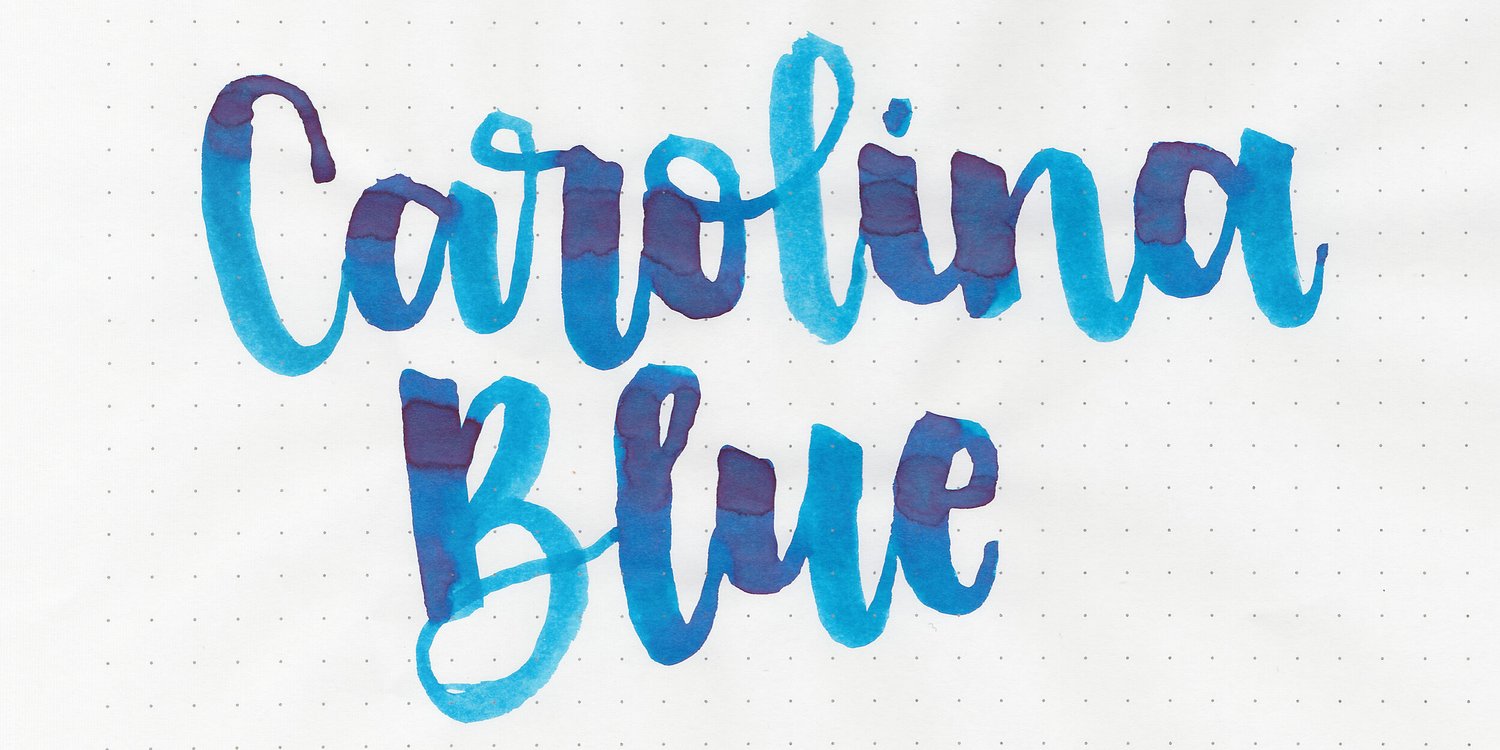 Carolina
Blue